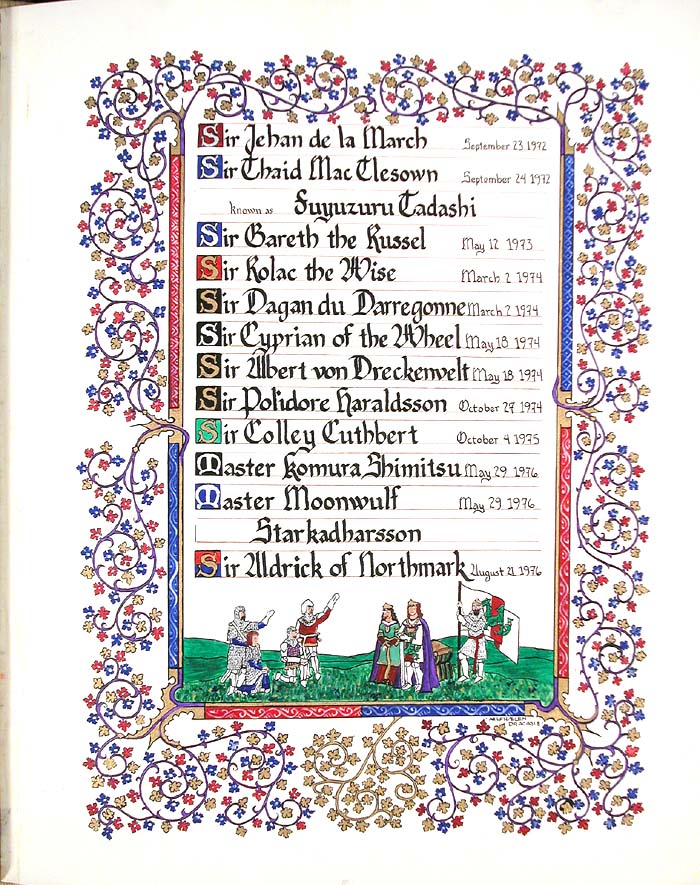 Sir Jehan de la March September 23, 1972
Sir Thaid Mac Clesown September 24, 1972
known as Fuyuzuru Tadashi
Sir Gareth the Russel May 12 1973
Sir Rolac the Wise March 2 1974
Sir Dagan du Darregonne March 2 1974
Sir Cyprian of the Wheel May 18 1974
Sir Albert von Dreckenvelt May 18 1974
Sir Polidore Haraldsson October 27, 1974
Sir Colley Cuthbert October 4 1975
Master Komura Shimitsu May 29, 1976
Master Moonwulf May 29, 1976
Starkadharsson
Sir Aldrick of Northmark August 21, 1976